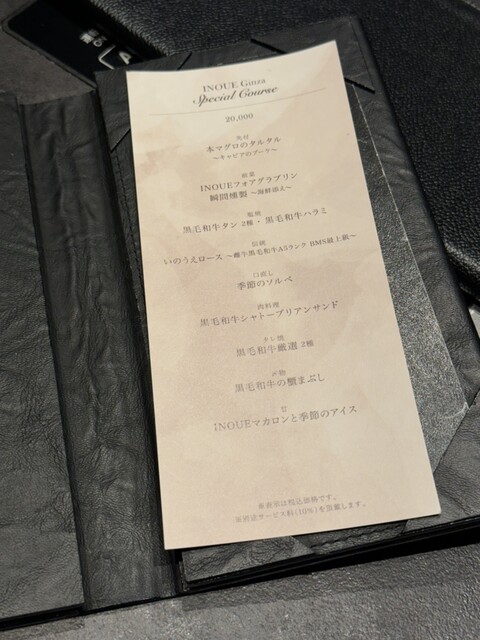 INOUE Ginza
Special Course
20,000
先付
本マグロのタルタル
〜キャビアのブーケ〜
前菜
INOUEフォアグラプリン
瞬間燻製 〜海鮮添え〜
塩焼
黒毛和牛タン 2種・黒毛和牛ハラミ
伝統
いのうえロース 〜雌牛黒毛和牛A5ランク BMS最上級〜
口直し
季節のソルベ
肉料理
黒毛和牛シャトーブリアンサンド
タレ焼
黒毛和牛厳選 2種
〆物
黒毛和牛の贅まぶし
甘
INOUEマカロンと季節のアイス
※価格は税込価格です。
※別途サービス料(10%)を頂戴します。